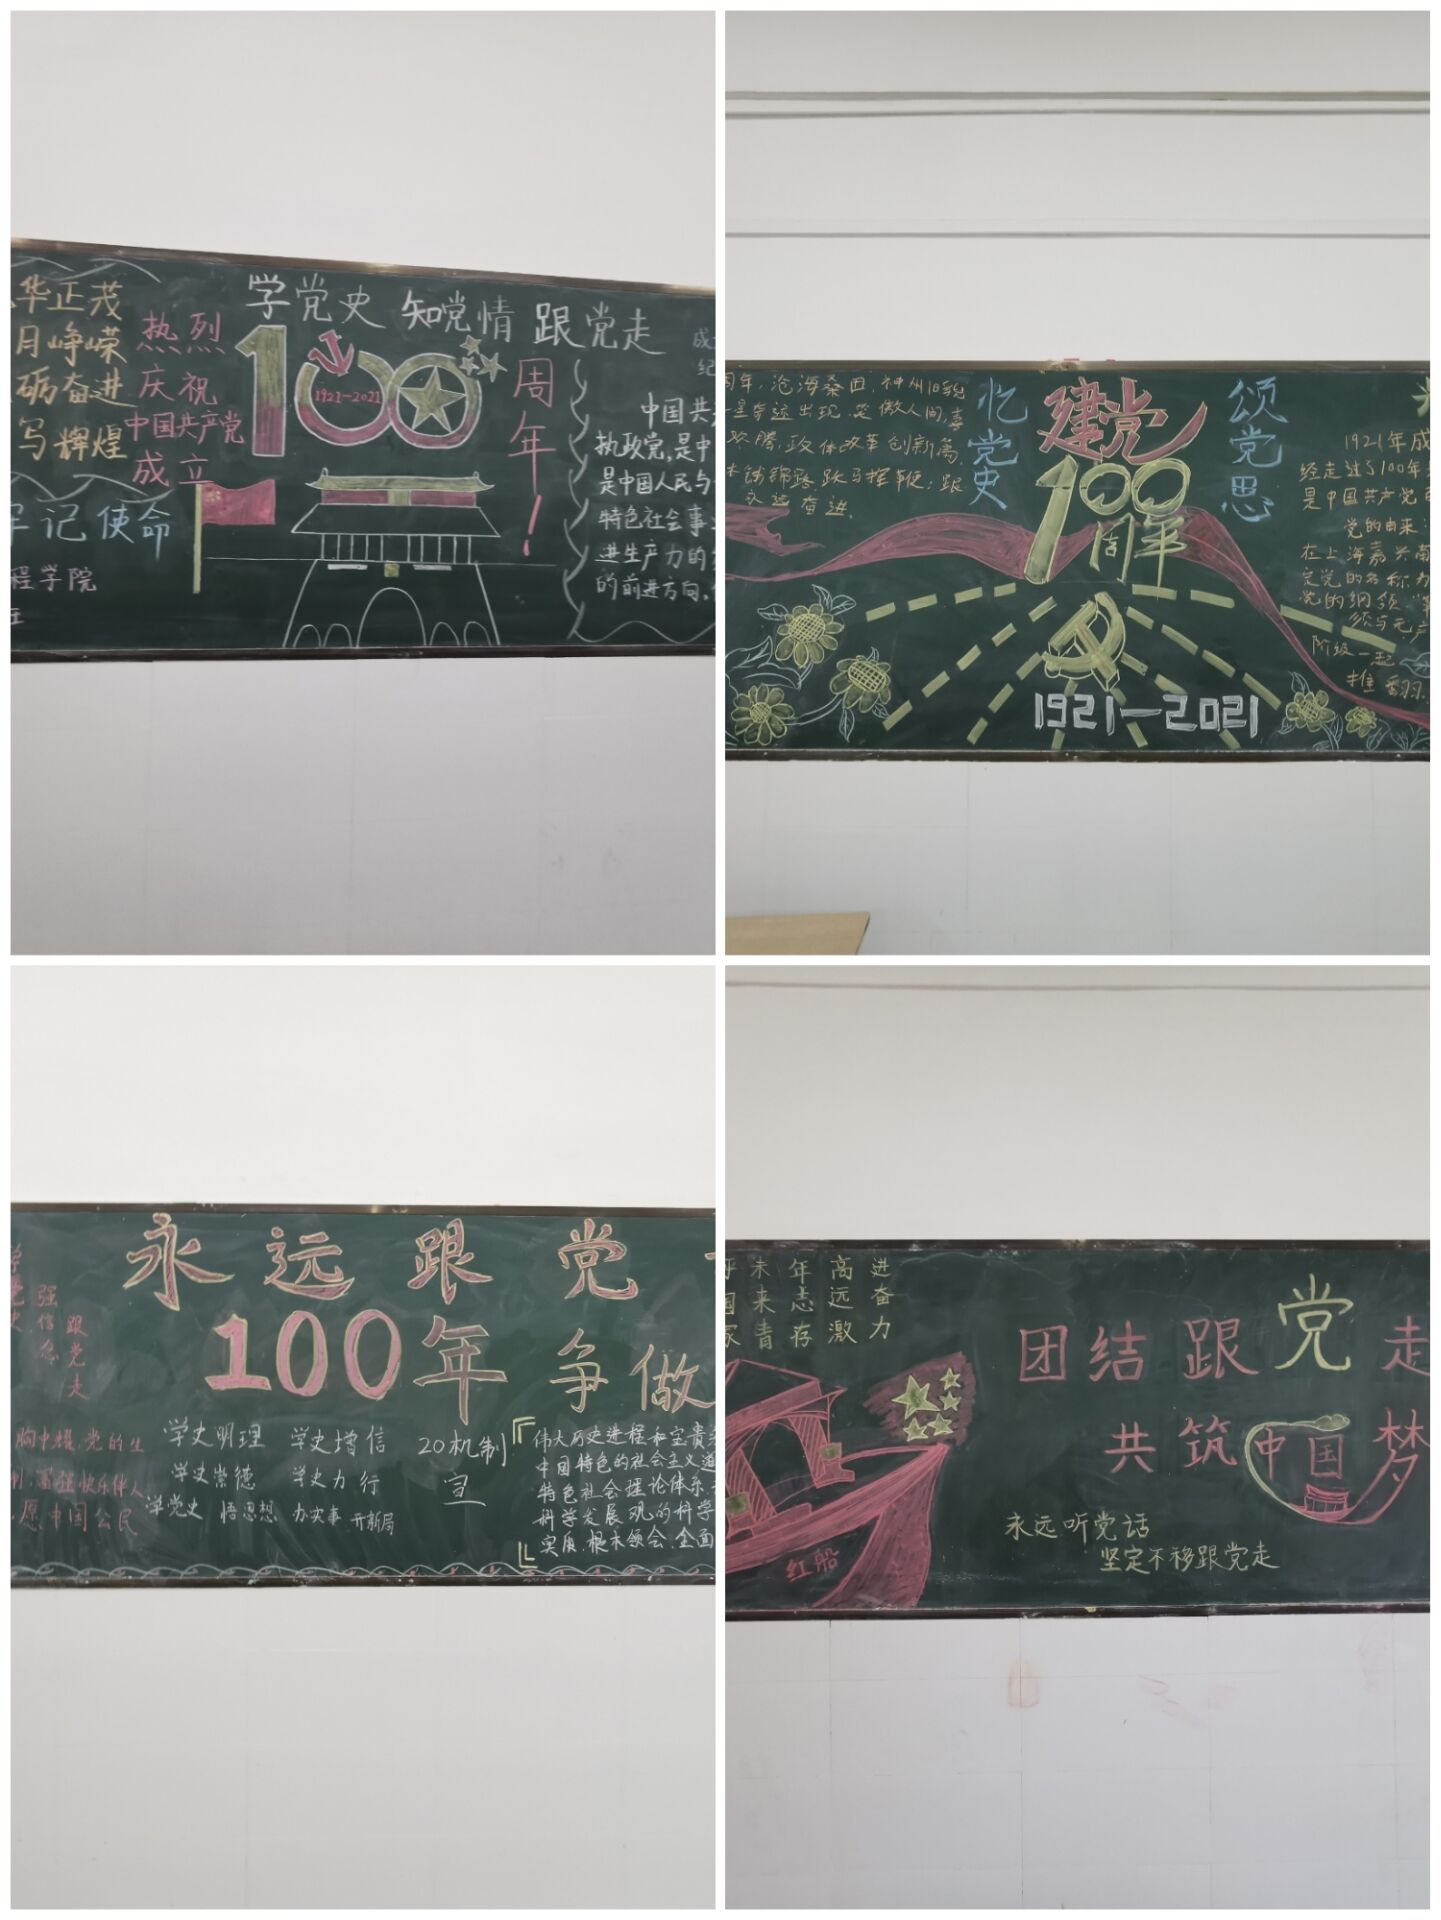 华正茂
月峥嵘
砺奋进
写辉煌
牢记使命
程学院
热烈
庆祝
中国共产党
成立
学党史 知党情 跟党走
100
1921-2021
周年!
成
纪
中国共
执政党,是中
是中国人民与
特色社会事
进生产力的
的前进方向,
周年,沧海桑田,神州旧貌
星奇迹出现,笑傲人间,事
欢腾,政体改革创新篇,
铁锦路,跃马挥鞭;跟
永远奋进.
忆党史
建党
100
周年
颂党恩
1921-2021
1921年成
经走过了100年
是中国共产党
党的由来:
在上海嘉兴南
定党的名称为
党的纲领
须与无产
阶级一起
推翻
永远跟党
100年 争做
强信念
跟党走
胸中耀,党的生
富强快乐伴人
愿中国公民
学史明理 学史增信
学史崇德 学史力行
学党史 悟思想 办实事 开新局
20机制
宣
伟大历史进程和宝贵
中国特色的社会主义道
特色社会理论体系
科学发展观的科学
实质,根本领会,全面
未来青
年志存
高远激
进奋力
国家
红船
团结跟党走
共筑中国梦
永远听党话
坚定不移跟党走